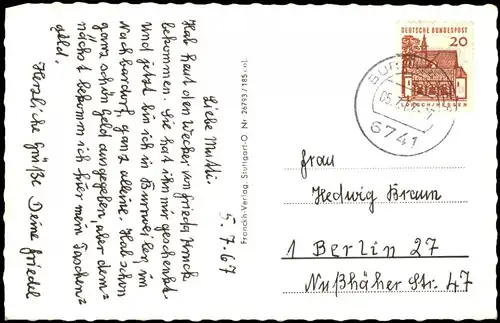 5.7.67
Liebe Mutti.
Hab heut den Wecker von Frieda
bekommen. Sie hat ihn mir geschenkt.
Und jetzt bin ich in Burrweiler im
Nachbardorf, ganz alleine. Hab schon
ganz schön Geld ausgegeben, aber dem=
nächst bekomm ich hier mein Taschen=
geld.
Herzliche Grüße Deine Friedel
Franckh-Verlag, Stuttgart-O. Nr.
DEUTSCHE BUNDESPOST
20
LORSCH/HESSEN
6741
Frau
Hedwig Braun
1 Berlin 27
Nußhäher Str. 47